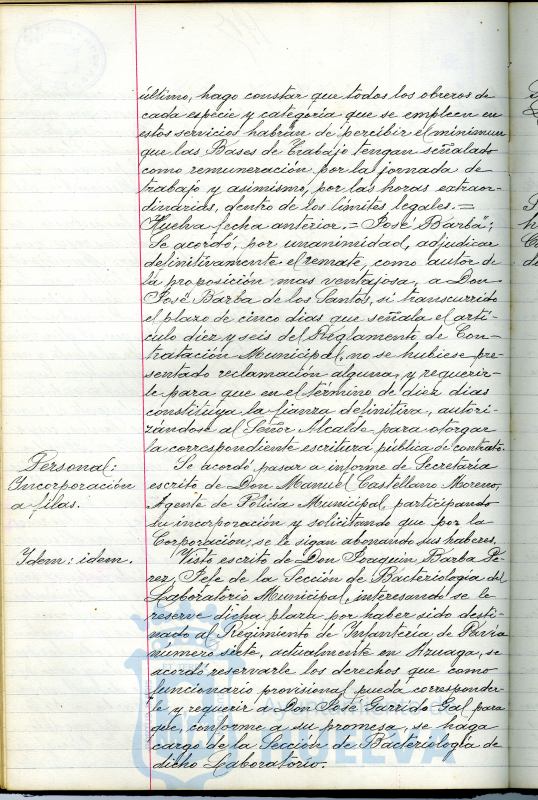 último, hago constar que todos los obreros de
cada especie y categoría que se empleen en
estos servicios habrán de percibir el minimun
que las Bases de Trabajo tengan señalado
como remuneración por la jornada de
trabajo y asimismo, por las horas extraor-
dinarias, dentro de los límites legales.=
Huelva fecha anterior.= José Barba";
Se acordó, por unanimidad, adjudicar
definitivamente el remate, como autor de
la proposición mas ventajosa, a Don
José Barba de los Santos, si transcurrido
el plazo de cinco dias que señala el artí-
culo diez y seis del Reglamento de Con-
tratación Municipal, no se hubiese pre-
sentado reclamación alguna, y requerir-
le para que en el término de diez dias
constituya la fianza definitiva, autori-
zándose al Señor Alcalde para otorgar
la correspondiente escritura pública de contrato.
Personal:
Incorporación
a filas.
Se acordó, pasar a informe de Secretaria
escrito de Don Manuel Castellano Moreno,
Agente de Policía Municipal, participando
su incorporación y solicitando que por la
Corporación, se le sigan abonando sus haberes.
Idem: idem.
Visto escrito de Don Joaquin Barba Pé-
rez, Jefe de la Sección de Bacteriologia del
Laboratorio Municipal, interesando se le
reserve dicha plaza por haber sido desti-
nado al Regimiento de Infanteria de Pavia
número siete, actualmente en Azuaga, se
acordó reservarle los derechos que como
funcionario provisional pueda corresponder-
le y requerir a Don José Garrido Gal para
que, conforme a su promesa, se haga
cargo de la Sección de Bacteriología de
dicho Laboratorio.
HUELVA